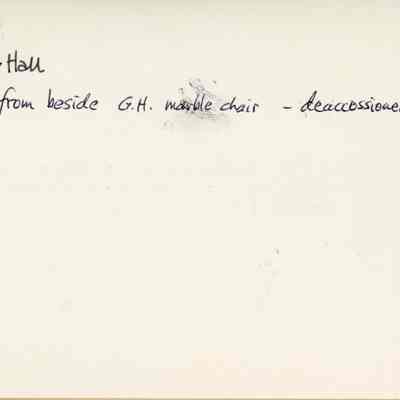 Hall
from beside G.H. marble chair - deaccessione